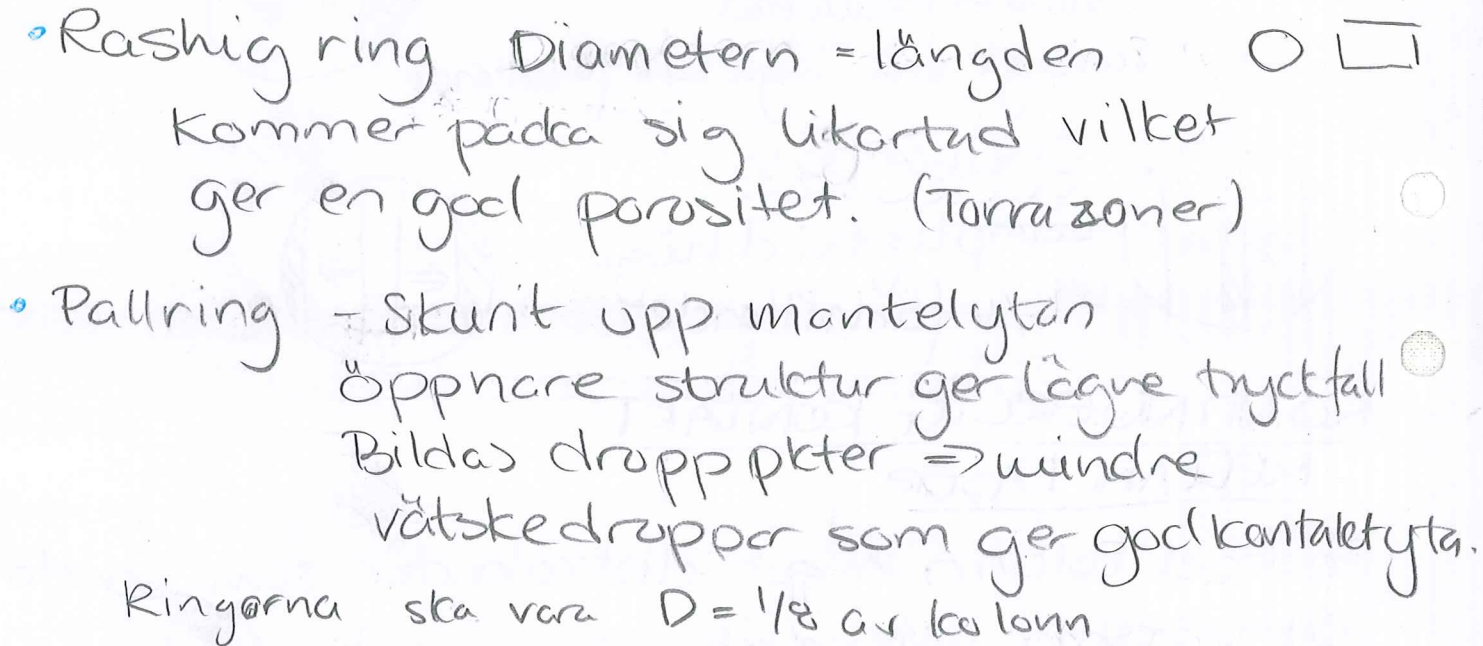 • Rashig ring Diametern = längden
Kommer packa sig likartad vilket
ger en god porositet. (Torra zoner)
• Pallring - Skurit upp mantelytan
öppnare struktur ger lägre tryckfall
Bildas dropppkter => mindre
vätskedroppar som ger god kontaktyta.
Ringarna ska vara D = 1/8 av kolonn